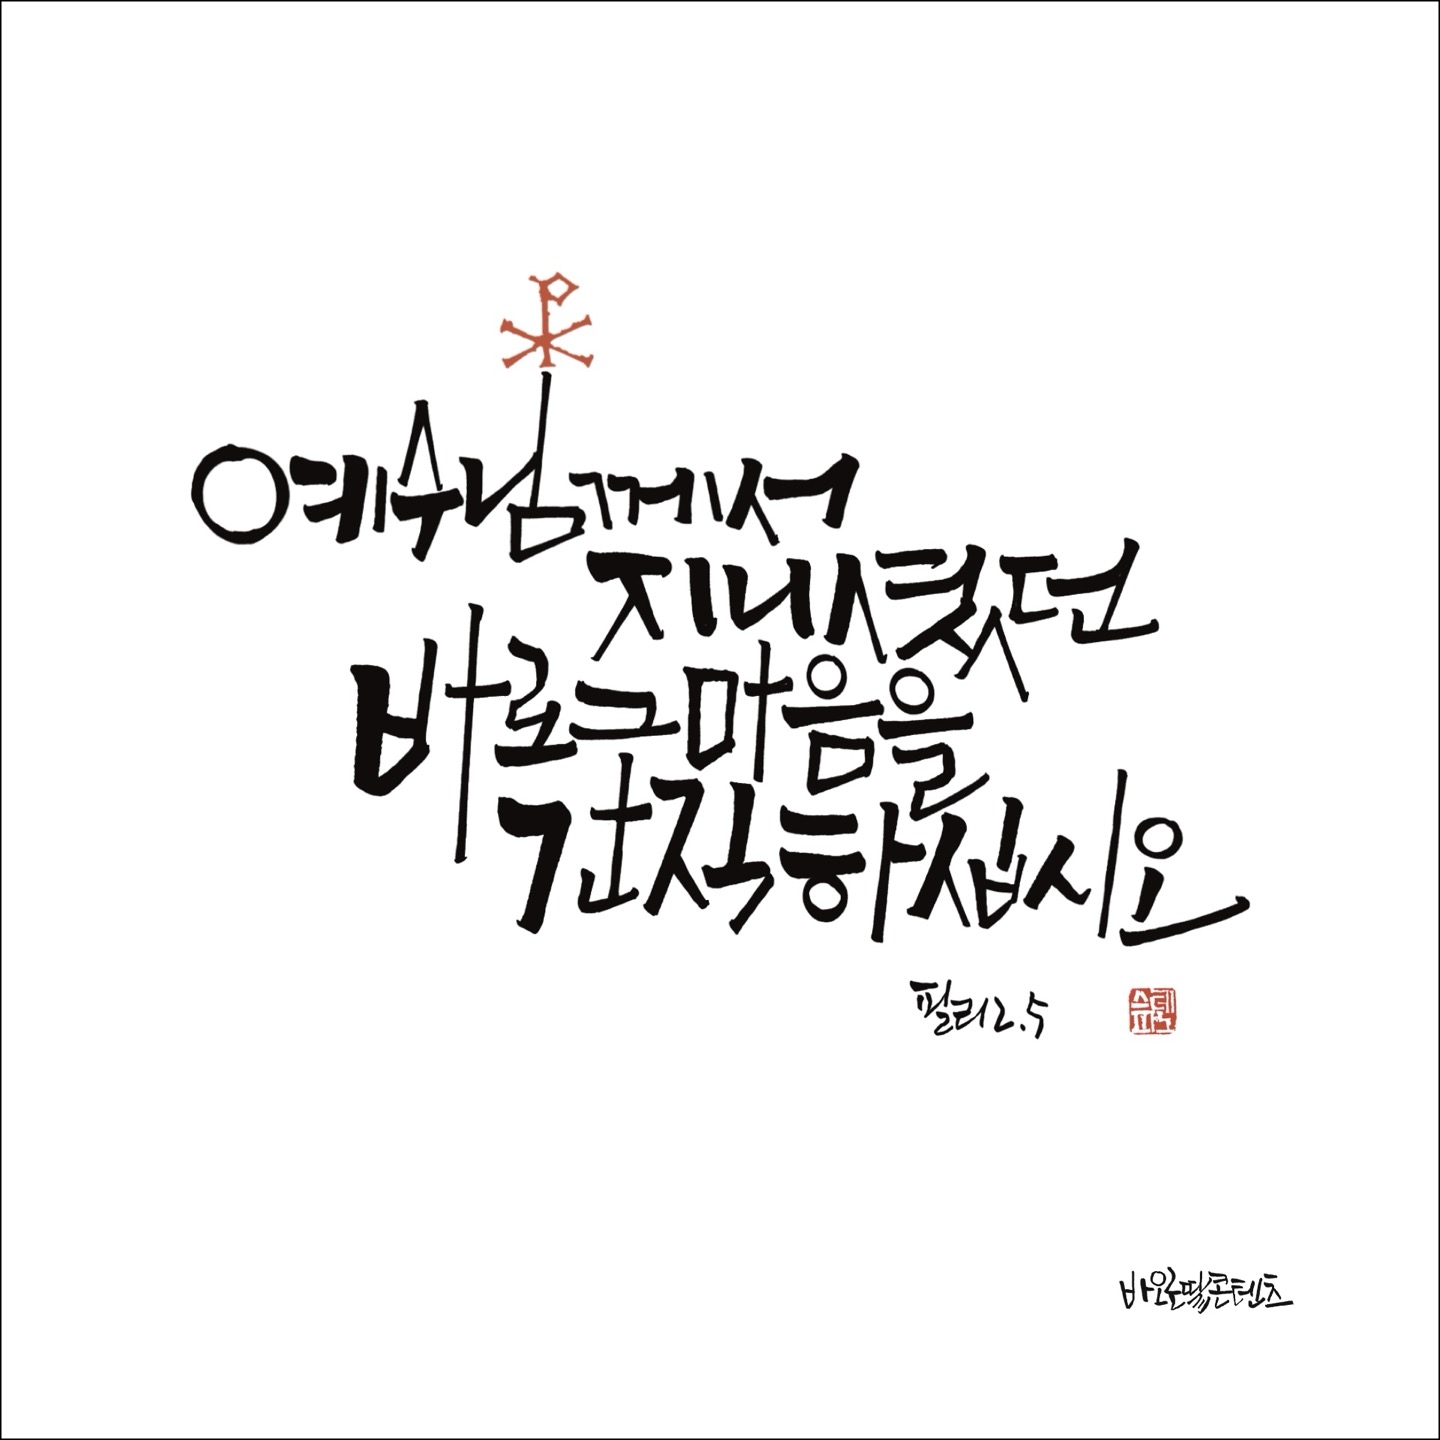 예수님께서
지내셨던
바로 그 마음을
간직하십시오
필리 2.5
바오로딸콘텐츠